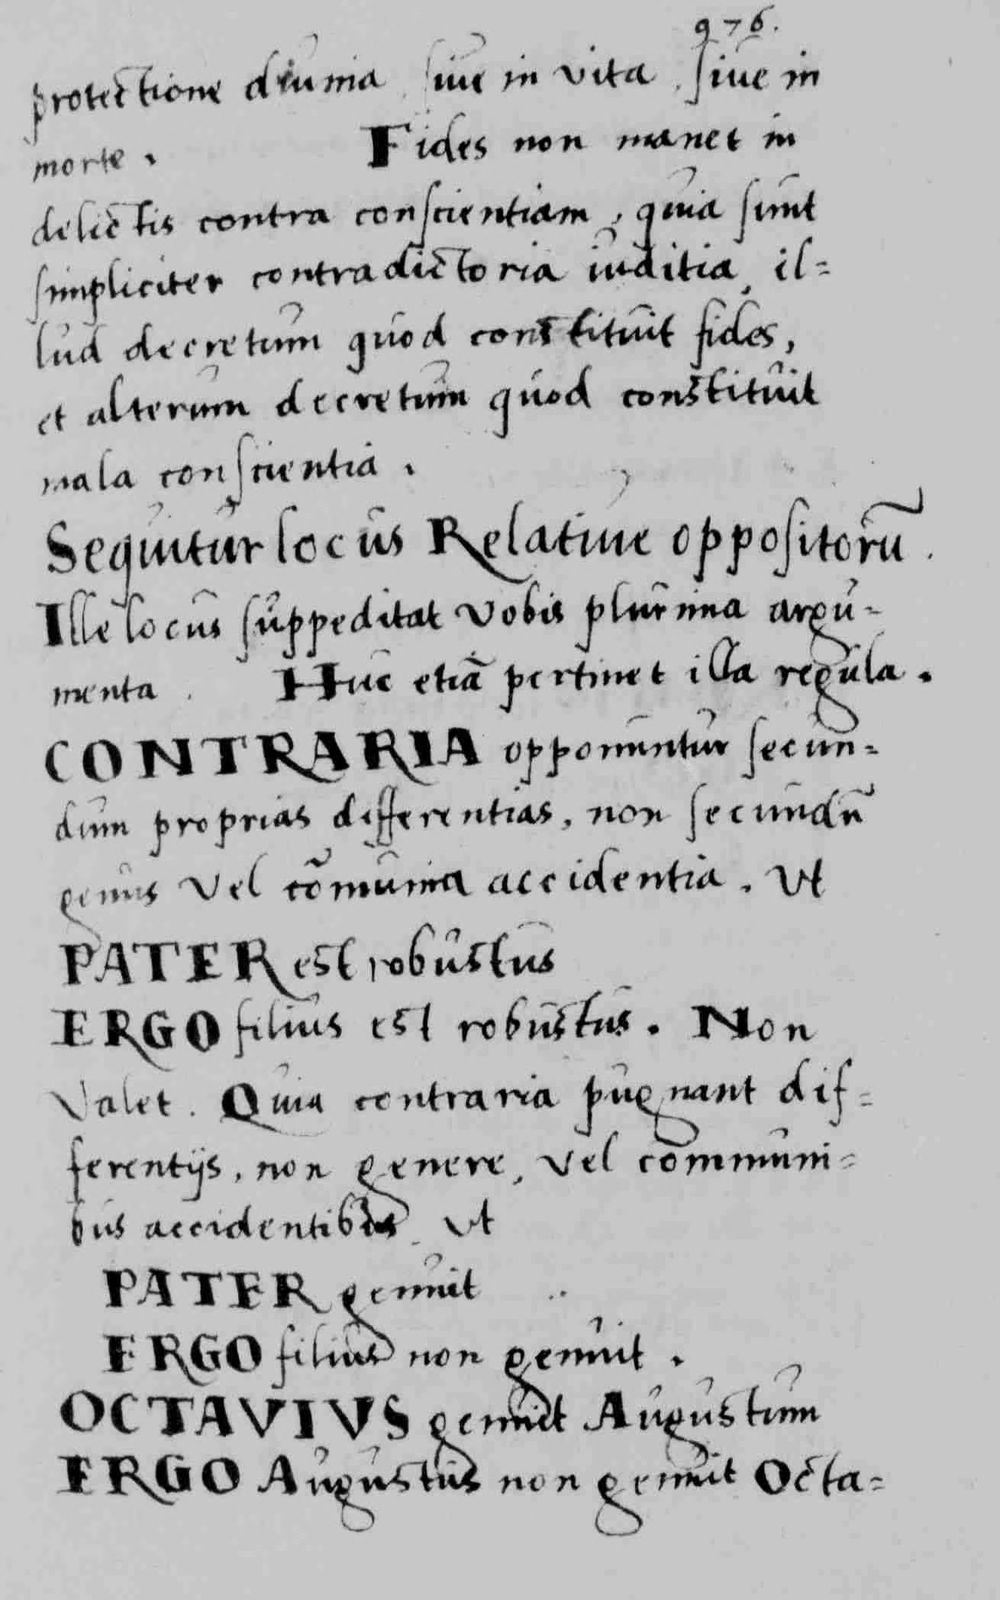 976.
protectione diuina, siue in vita, siue in
morte. Fides non manet in
delictis contra conscientiam, quia sunt
simpliciter contradictoria iuditia, il=
lud decretum quod constituit fides,
et alterum decretum quod constituit
mala conscientia.
Sequitur locus Relatiue oppositorū.
Ille locus suppeditat vobis plurima argu=
menta. Huc etiā pertinet illa regula.
CONTRARIA opponuntur secun=
dum proprias differentias, non secundū
genus vel cōmunia accidentia. Vt
PATER est robustus
ERGO filius est robustus. Non
valet. Quia contraria pugnant dif=
ferentijs, non genere, vel communi=
bus accidentibus, vt
PATER genuit
ERGO filius non genuit.
OCTAVIVS genuit Augustum
ERGO Augustus non genuit Octa=